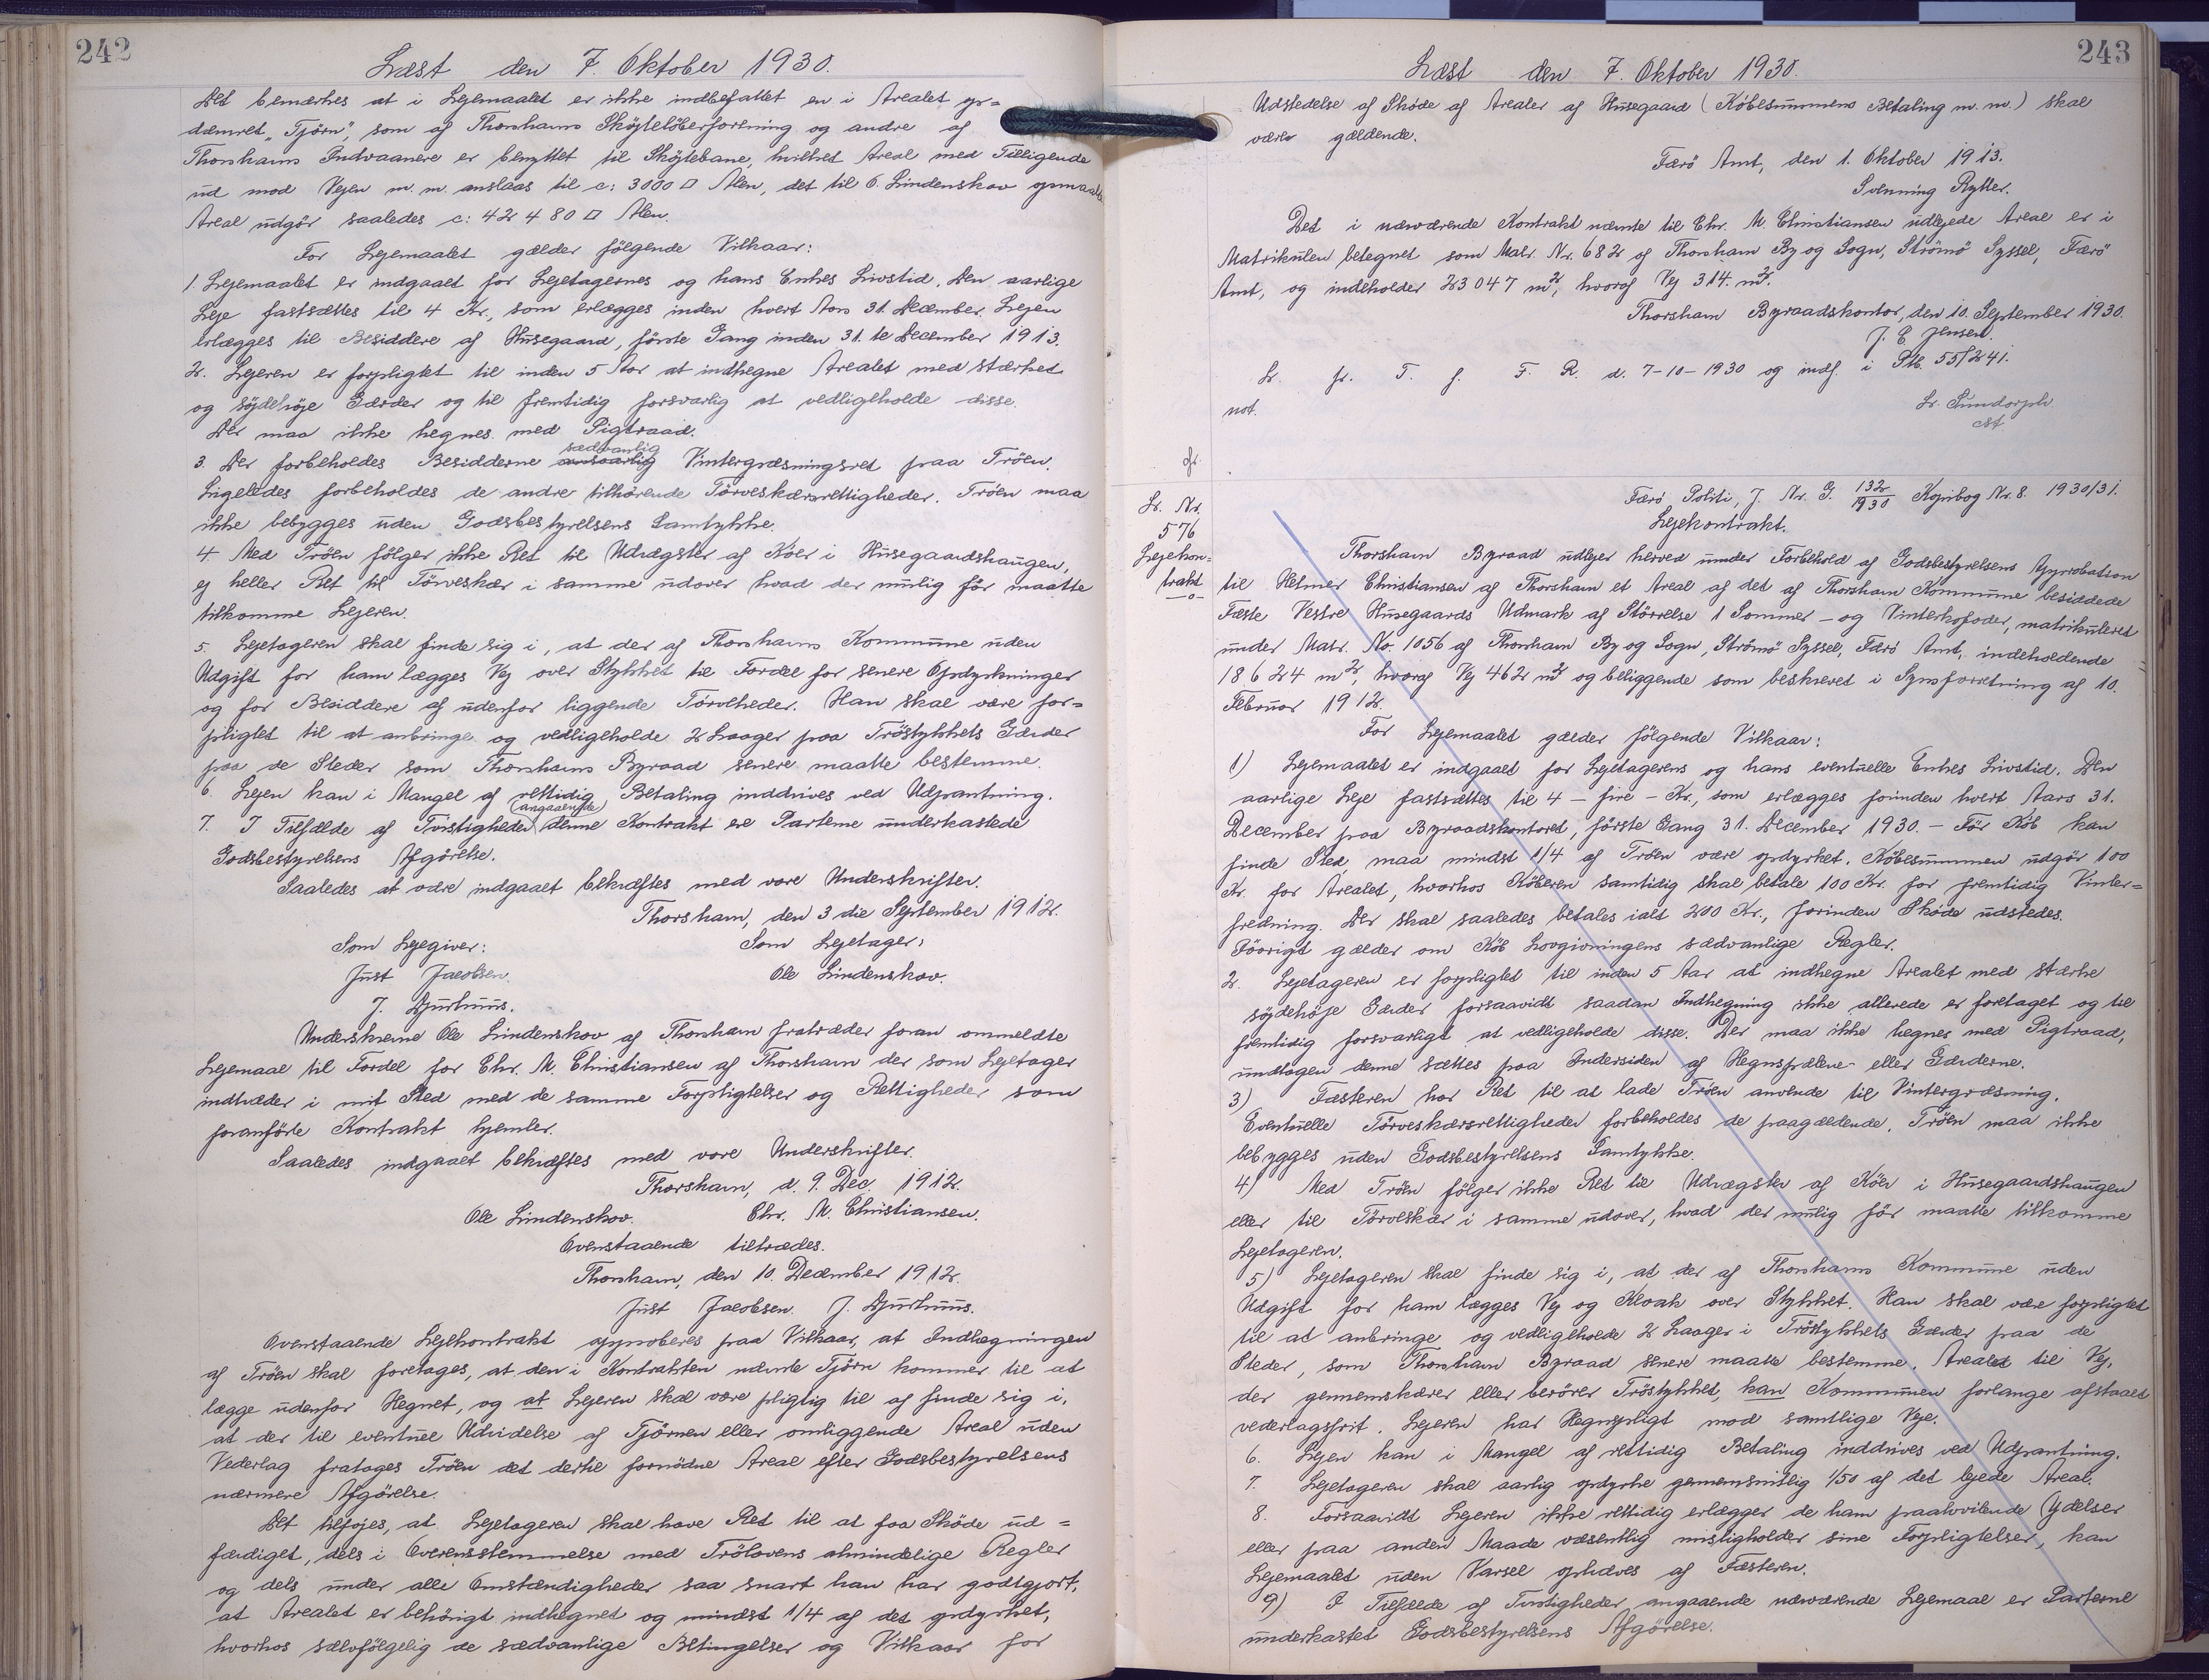 242
Læst den 7. Oktober 1930.
Det bemærkes at i Lejemaalet er ikke indbefattet en i Arealet op=
dæmmet "Tjörn", som af Thorshavns Sköjtelöberforening og andre af
Thorshavns Indvaanere er benyttet til Sköjtebane, hvilket Areal med Tilliggende
ud mod Vejen m. m. anslaas til c: 3000 □ Alen, det til O. Lindenskov opmaalte
Areal udgör saaledes c: 42480 □ Alen.
For Lejemaalet gælder følgende Vilkaar:
1. Lejemaalet er indgaaet for Lejetagernes og hans Enkes Livstid. Den aarlige
Leje fastsættes til 4 Kr., som erlægges inden hvert Aars 31. December. Lejen
erlægges til Besiddere af Husegaard, förste Gang inden 31.te December 1913.
2. Lejeren er forpligtet til inden 5 Aar at indhegne Arealet med stærke
og söjdehöje Gærder og til fremtidig forsvarlig at vedligeholde disse.
Der maa ikke hegnes med Pigtraad.
3. Der forbeholdes Besidderne ansvarlig sædvanlig Vintergræsningsret paa Tröen.
Ligeledes forbeholdes de andre tilhörende Törveskærsrettigheder. Tröen maa
ikke bebygges uden Godsbestyrelsens Samtykke.
4. Med Tröen fölger ikke Ret til Udrægster af Köer i Husegaardshaugen,
ej heller Ret til Törveskær i samme udover hvad der mulig för maatte
tilkomme Lejeren.
5. Lejetageren skal finde sig i, at der af Thorshavns Kommune uden
Udgift for ham lægges Vej over Stykket til Fordel for senere Opdyrkninger
og for Besiddere af udenfor liggende Törveheder. Han skal være for=
pligtet til at anbringe og vedligeholde 2 Laager paa Tröstykkets Gærder
paa de Steder som Thorshavns Byraad senere maatte bestemme.
6. Lejen kan i Mangel af rettidig Betaling inddrives ved Udpantning.
7. I Tilfælde af Tvistigheder (angaaende) denne Kontrakt ere Parterne underkastede
Godsbestyrelsens Afgörelse.
Saaledes at være indgaaet bekræftes med vore Underskrifter.
Thorshavn, den 3die September 1912.
Som Lejegiver: Som Lejetager:
Just Jacobsen. Ole Lindenskov.
J. Djurhuus.
Underskrevne Ole Lindenskov af Thorshavn fratræder foran ommeldte
Lejemaal til Fordel for Chr. M. Christiansen af Thorshavn der som Lejetager
indtræder i mit Sted med de samme Forpligtelser og Rettigheder som
foranförte Kontrakt hjemler.
Saaledes indgaaet bekræftes med vore Underskrifter.
Thorshavn, d. 9. Dec. 1912.
Ole Lindenskov. Chr. M. Christiansen.
Ovenstaaende tiltrædes.
Thorshavn, den 10. December 1912.
Just Jacobsen. J. Djurhuus.
Ovenstaaende Lejekontrakt approberes paa Vilkaar, at Indhegningen
af Tröen skal foretages, at den i Kontrakten nævnte Tjörn kommer til at
lægge udenfor Hegnet, og at Lejeren skal være pligtig til af finde sig i,
at der til eventuel Udvidelse af Tjörnen eller omliggende Areal uden
Vederlag fratages Tröen det dertil fornödne Areal efter Godsbestyrelsens
nærmere Afgörelse.
Det tilföjes, at Lejetageren skal have Ret til at faa Sköde ud=
færdiget, dels i Overensstemmelse med Trölovens almindelige Regler
og dels under alle Omstændigheder saa snart han har godtgjort,
at Arealet er behörigt indhegnet og mindst 1/4 af det opdyrket,
hvorhos selvfölgelig de sædvanlige Betingelser og Vilkaar for
243
Læst den 7. Oktober 1930.
Udstedelse af Sköde af Arealer af Husegaard (Köbesummens Betaling m. m.) skal
være gældende.
Færö Amt, den 1. Oktober 1913.
Svenning Rytter.
Det i nærværende Kontrakt nævnte til Chr. M. Christiansen udlejede Areal er i
Matrikulen betegnet som Matr. Nr. 682 af Thorshavn By og Sogn, Strömö Syssel, Færö
Amt, og indeholder 23047 m², hvoraf Vej 314. m².
Thorshavn Byraadskontor, den 10. September 1930.
J. E. Jensen.
Lr. fr. T. f. F. R. d. 7-10-1930 og indf. i Ptb. 55/241.
not.
Lr. Sundorph
cst.
Færö Politi, J. Nr. G. 132/1930 Kopibog Nr. 8. 1930/31.
Lr. Nr.
576
Lejekon=
trakt
Lejekontrakt.
Thorshavn Byraad udlejer herved under Forbehold af Godsbestyrelsens Approbation
til Helmer Christiansen af Thorshavn et Areal af det af Thorshavn Kommune besiddede
Fæste Vestre Husegaards Udmark af Störrelse 1 Sommer - og Vinterkofoder, matrikuleret
under Matr. No. 1056 af Thorshavn By og Sogn, Strömö Syssel, Færö Amt, indeholdende
18624 m², hvoraf Vej 462 m² og beliggende som beskrevet i Synsforretning af 10.
Februar 1912.
For Lejemaalet gælder fölgende Vilkaar:
1) Lejemaalet er indgaaet for Lejetagerens og hans eventuelle Enkes Livstid. Den
aarlige Leje fastsættes til 4 - fire - Kr., som erlægges forinden hvert Aars 31.
December paa Byraadskontoret, förste Gang 31. December 1930. - För Köb kan
finde Sted, maa mindst 1/4 af Tröen være opdyrket. Köbesummen udgör 100
Kr. for Arealet, hvorhos Köberen samtidig skal betale 100 Kr. for fremtidig Vinter=
fredning. Der skal saaledes betales ialt 200 Kr., forinden Sköde udstedes.
Iövrigt gælder om Köb Lovgivningens sædvanlige Regler.
2. Lejetageren er forpligtet til inden 5 Aar at indhegne Arealet med stærke
söjdehöje Gærder forsaavidt saadan Indhegning ikke allerede er foretaget og til
fremtidig forsvarligt at vedligeholde disse. Der maa ikke hegnes med Pigtraad,
undtagen denne sættes paa Indersiden af Hegnspælene eller Gærderne.
3) Fæsteren har Ret til at lade Tröen anvende til Vintergræsning.
Eventuelle Törveskærsrettigheder forbeholdes de paagældende. Tröen maa ikke
bebygges uden Godsbestyrelsens Samtykke.
4) Med Tröen fölger ikke Ret til Udrægster af Köer i Husegaardshaugen
eller til Törveskær i samme udover, hvad der mulig för maatte tilkomme
Lejetageren.
5) Lejetageren skal finde sig i, at der af Thorshavns Kommune uden
Udgift for ham lægges Vej og Kloak over Stykket. Han skal være forpligtet
til at anbringe og vedligeholde 2 Laager i Tröstykkets Gærder paa de
Steder, som Thorshavn Byraad senere maatte bestemme. Arealet til Vej,
der gennemskærer eller berörer Tröstykket, kan Kommunen forlange afstaaet
vederlagsfrit. Lejeren har Hegnspligt mod samtlige Veje.
6. Lejen kan i Mangel af rettidig Betaling inddrives ved Udpantning.
7. Lejetageren skal aarlig opdyrke gennemsnitlig 1/50 af det lejede Areal.
8. Forsaavidt Lejeren ikke rettidig erlægger de ham paahvilende Ydelser
eller paa anden Maade væsentlig misligholder sine Forpligtelser, kan
Lejemaalet uden Varsel ophæves af Fæsteren.
9) I Tilfælde af Tvistigheder angaaende nærværende Lejemaal er Parterne
underkastet Godsbestyrelsens Afgörelse.